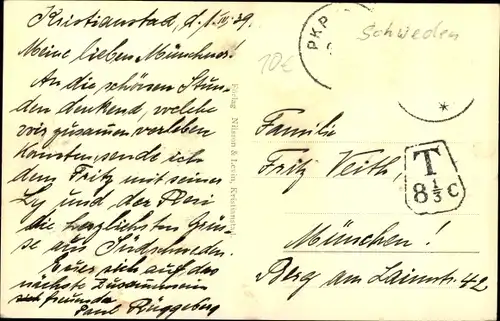 Kristianstad, d. 1. IV. 39.
Meine lieben Münchner!
An die schönen Stun-
den denkend, welche
wir zusammen verleben
konnten, sende ich
dem Fritz mit seiner
Ly und der
die herzlichsten Grüs-
se aus Südschweden.
Euer sich auf das
nächste Zusammensein
freuende
Paul Rüggeberg
Förlag Nilsson & Levin, Kristianstad
PKP
10€
Schweden
T
8 1/3 C
Familie
Fritz Veith,
München!
Berg am Laimstr. 42